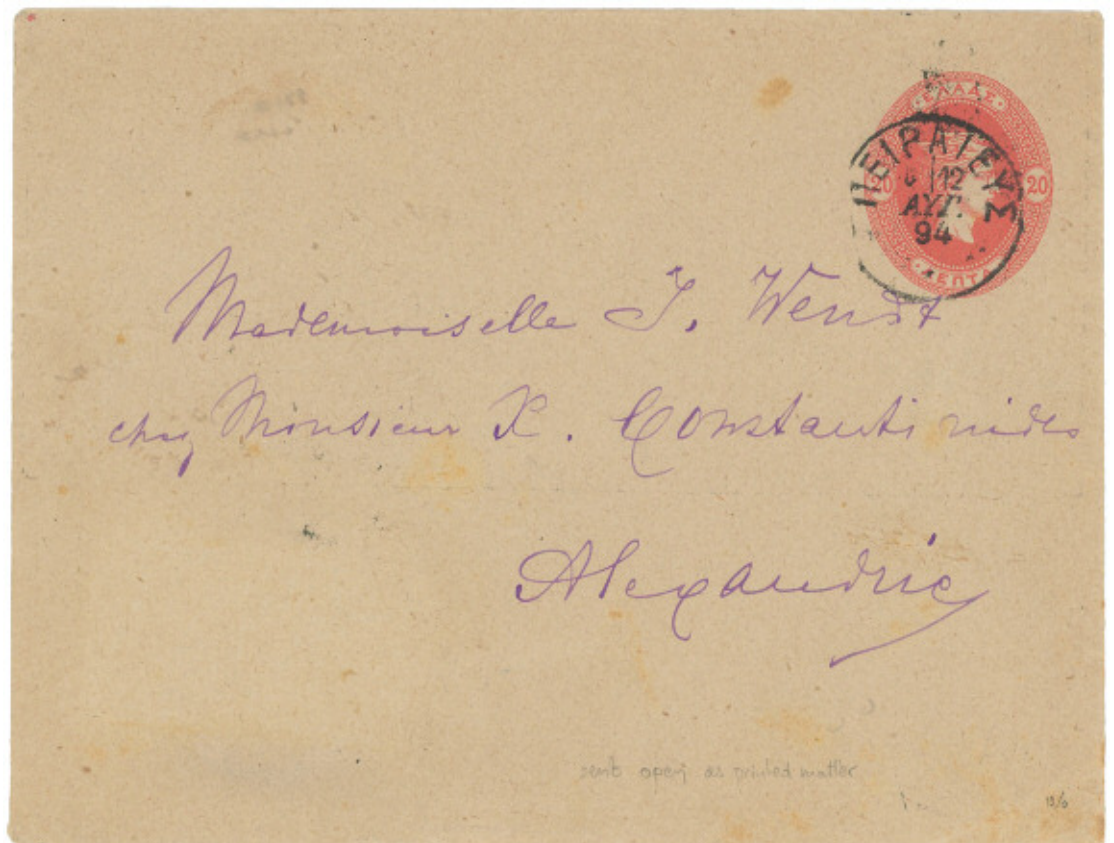 ΕΛΛΑΣ
20 20
ΛΕΠΤΑ
ΠΕΙΡΑΙΕΥΣ
12
ΑΥΓ.
94
Mademoiselle J. Wendt
chez Monsieur X. Constantinides
Alexandrie
sent open as printed matter